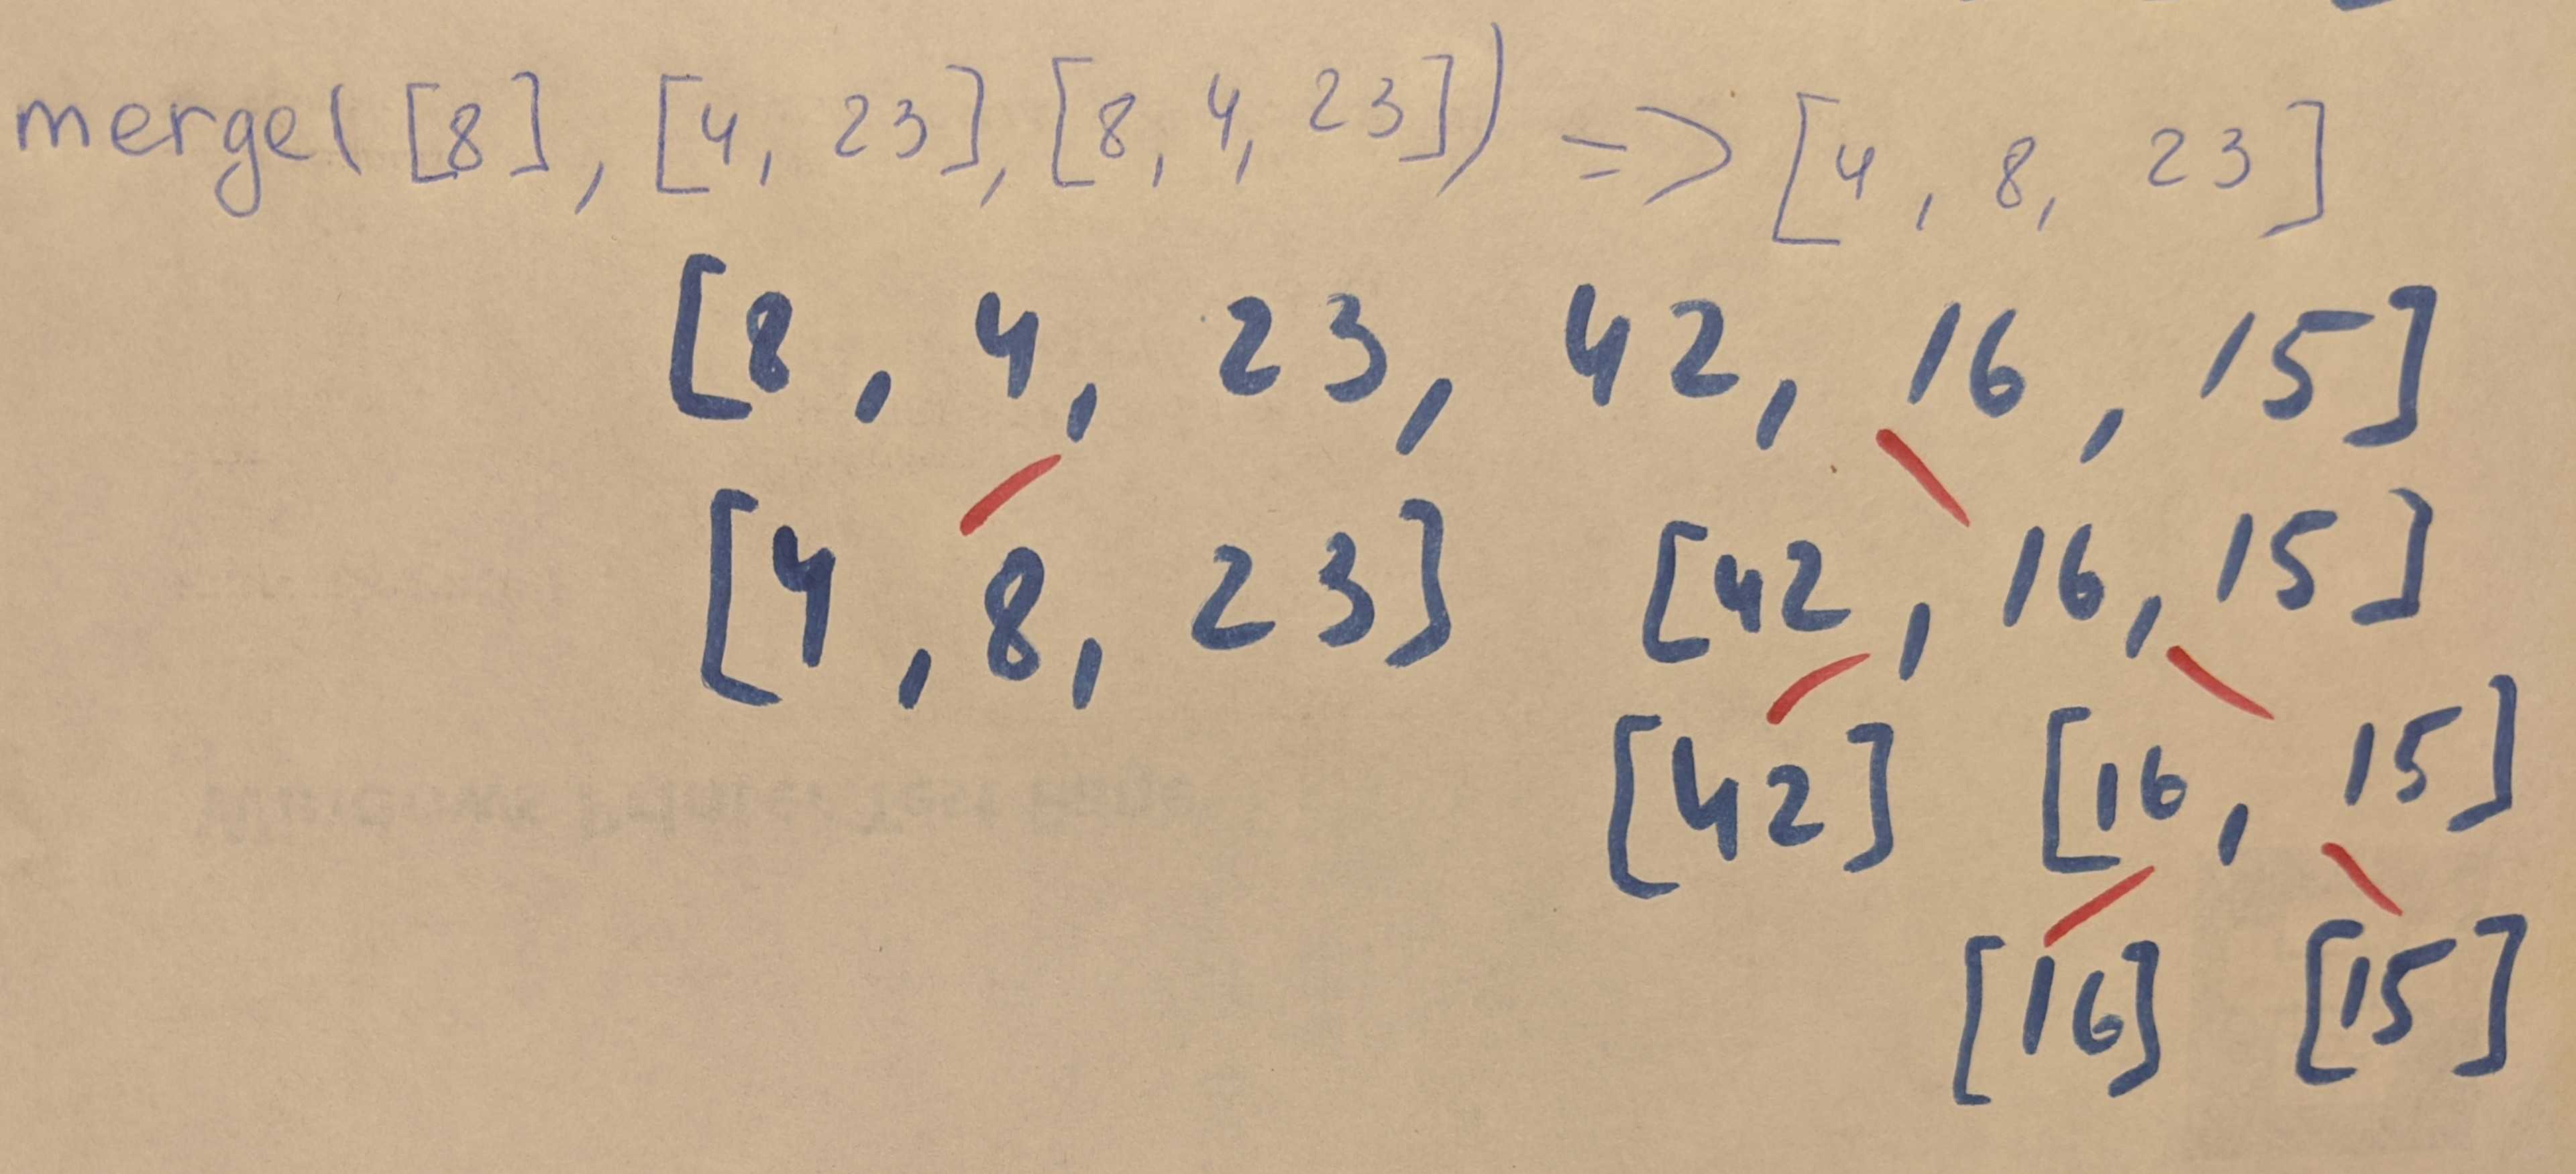 merge([8], [4, 23], [8, 4, 23]) => [4, 8, 23]
[8, 4, 23, 42, 16, 15]
[4, 8, 23] [42, 16, 15]
[42] [16, 15]
[16] [15]